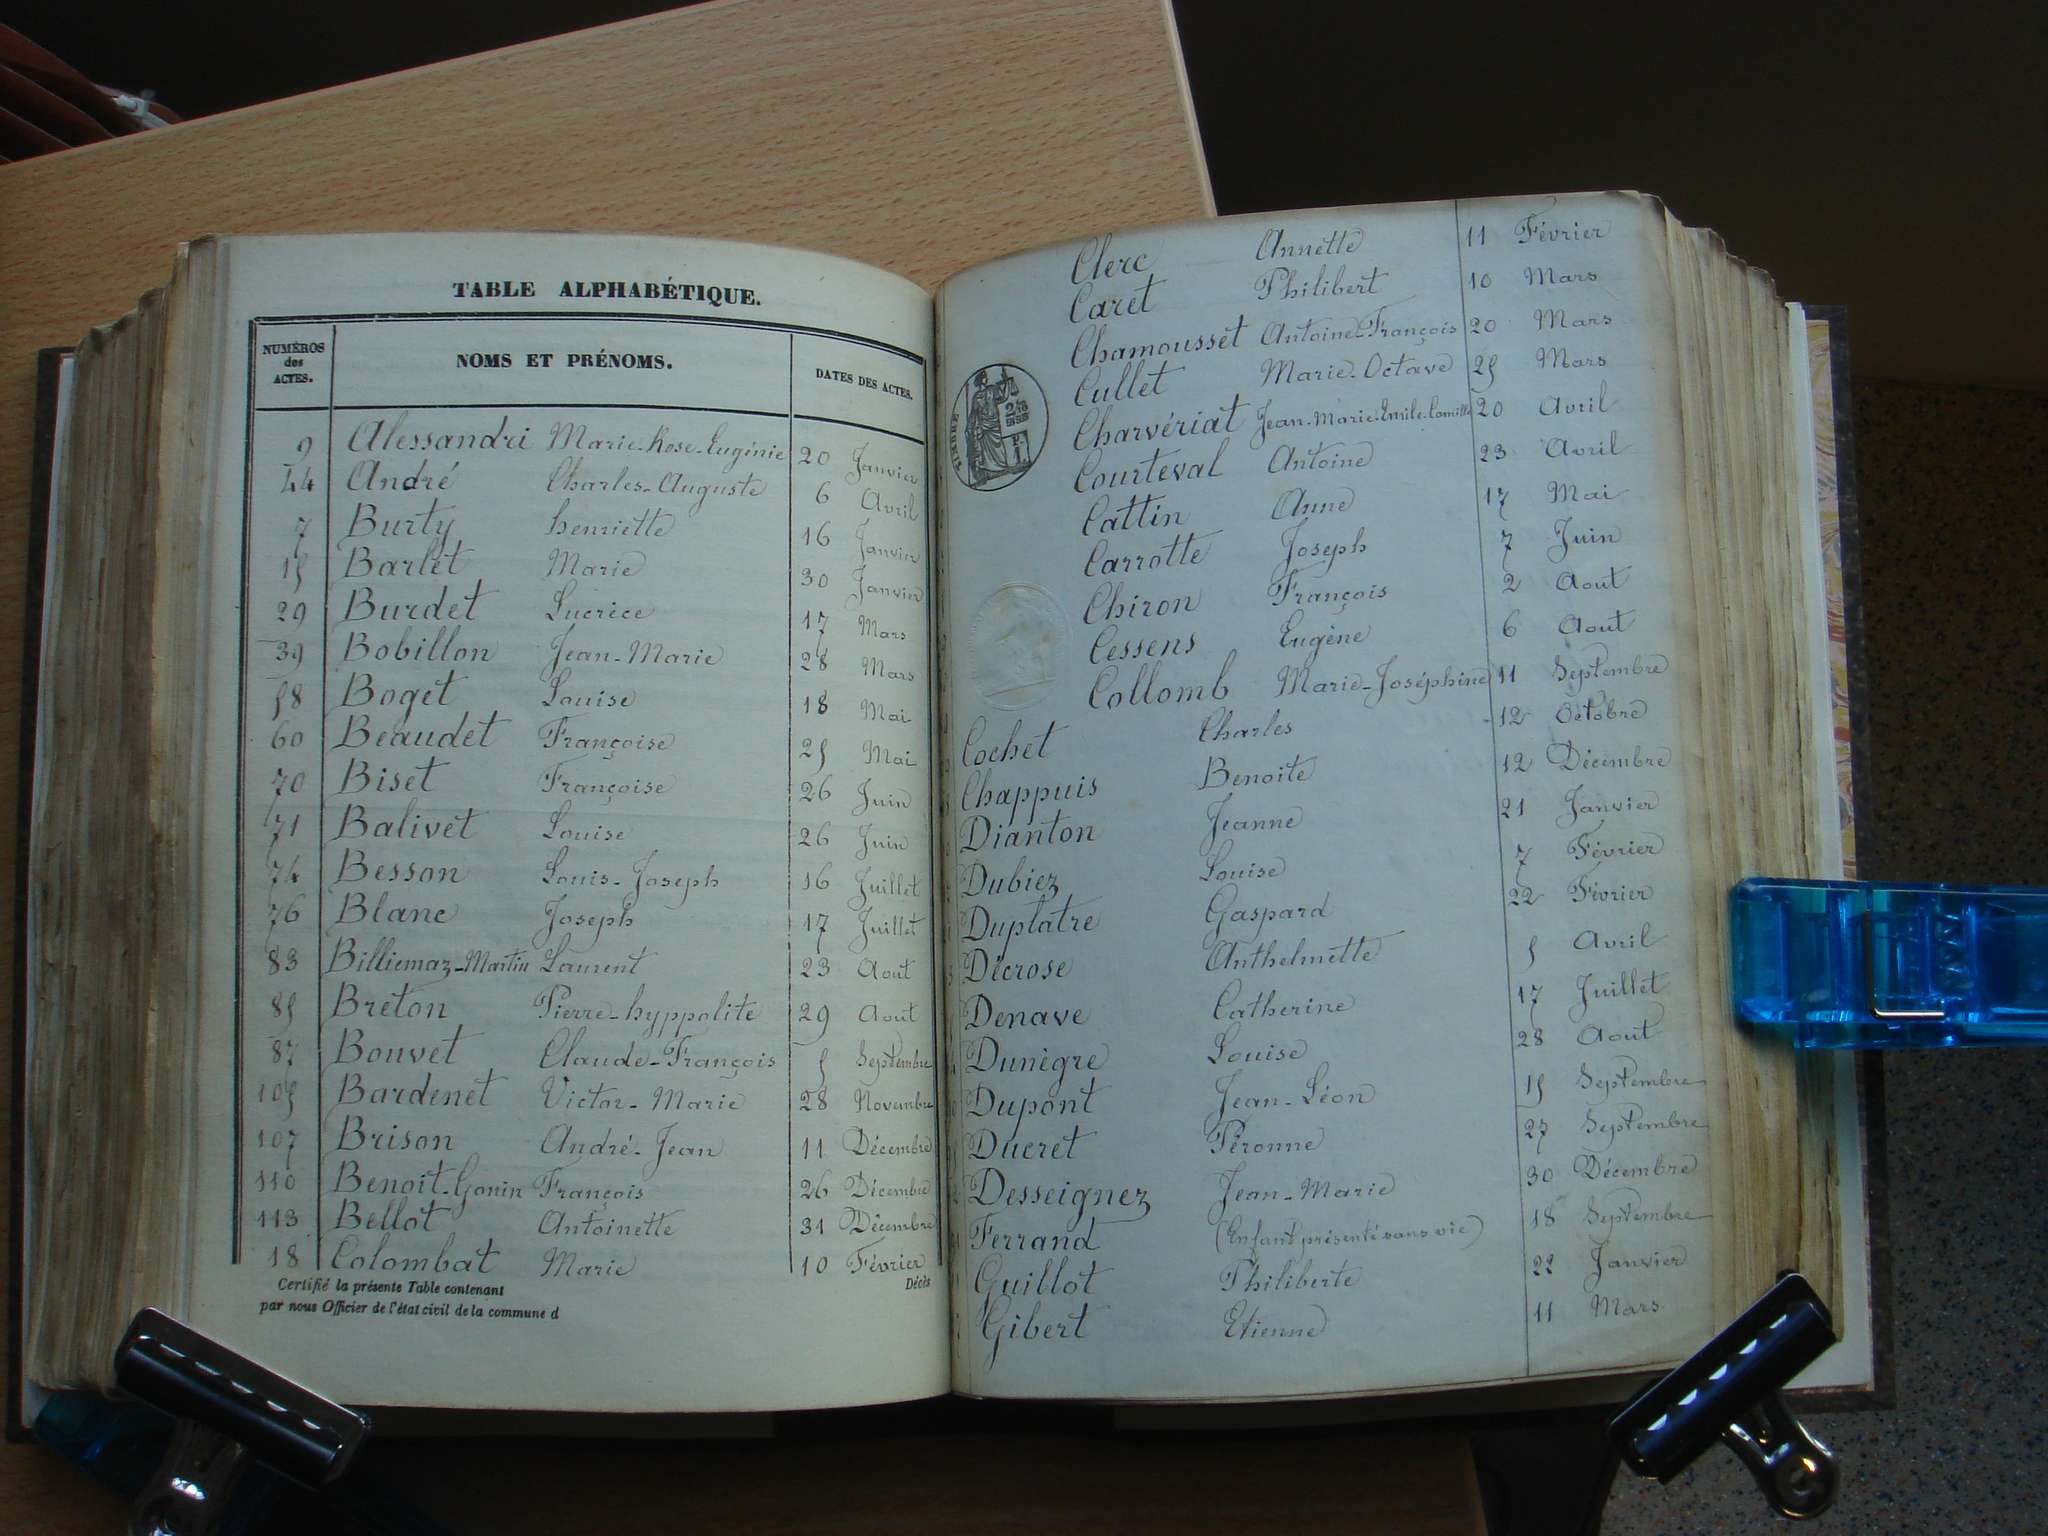 TABLE ALPHABÉTIQUE.
NUMÉROS des ACTES. NOMS ET PRÉNOMS. DATES DES ACTES.
9 Alessandri Marie-Rose-Eugénie 20 Janvier
44 André Charles-Auguste 6 Avril
7 Burty henriette 16 Janvier
15 Barlet Marie 30 Janvier
29 Burdet Lucrèce 17 Mars
39 Bobillon Jean-Marie 28 Mars
58 Boget Louise 18 Mai
60 Beaudet Françoise 25 Mai
70 Biset Françoise 26 Juin
71 Balivet Louise 26 Juin
74 Besson Louis-Joseph 16 Juillet
76 Blanc Joseph 17 Juillet
83 Billiemaz-Martin Laurent 23 Aout
85 Breton Pierre-hyppolite 29 Aout
87 Bouvet Claude-François 5 Septembre
105 Bardenet Victor-Marie 28 Novembre
107 Brison André-Jean 11 Décembre
110 Benoit-Gonin François 26 Décembre
113 Bellot Antoinette 31 Décembre
18 Colombat Marie 10 Février
Certifié la présente Table contenant Décès
par nous Officier de l'état civil de la commune d
Clerc Annette 11 Février
Caret Philibert 10 Mars
Chamousset Antoine-François 20 Mars
Cullet Marie-Octave 25 Mars
Charvériat Jean-Marie-Emile-Camille 20 Avril
TIMBRE
Courteval Antoine 23 Avril
Cattin Anne 17 Mai
Carrotte Joseph 7 Juin
Chiron François 2 Aout
Cessens Eugène 6 Aout
Collomb Marie-Joséphine 11 Septembre
Cochet Charles 12 Octobre
Chappuis Benoite 12 Décembre
Dianton Jeanne 21 Janvier
Dubiez Louise 7 Février
Duplatre Gaspard 22 Février
Décrose Anthelmette 5 Avril
Denave Catherine 17 Juillet
Dunègre Louise 28 Aout
Dupont Jean-Léon 15 Septembre
Ducret Péronne 27 Septembre
Desseignez Jean-Marie 30 Décembre
Ferrand (Enfant présenté sans vie) 18 Septembre
Guillot Philiberte 22 Janvier
Gibert Etienne 11 Mars